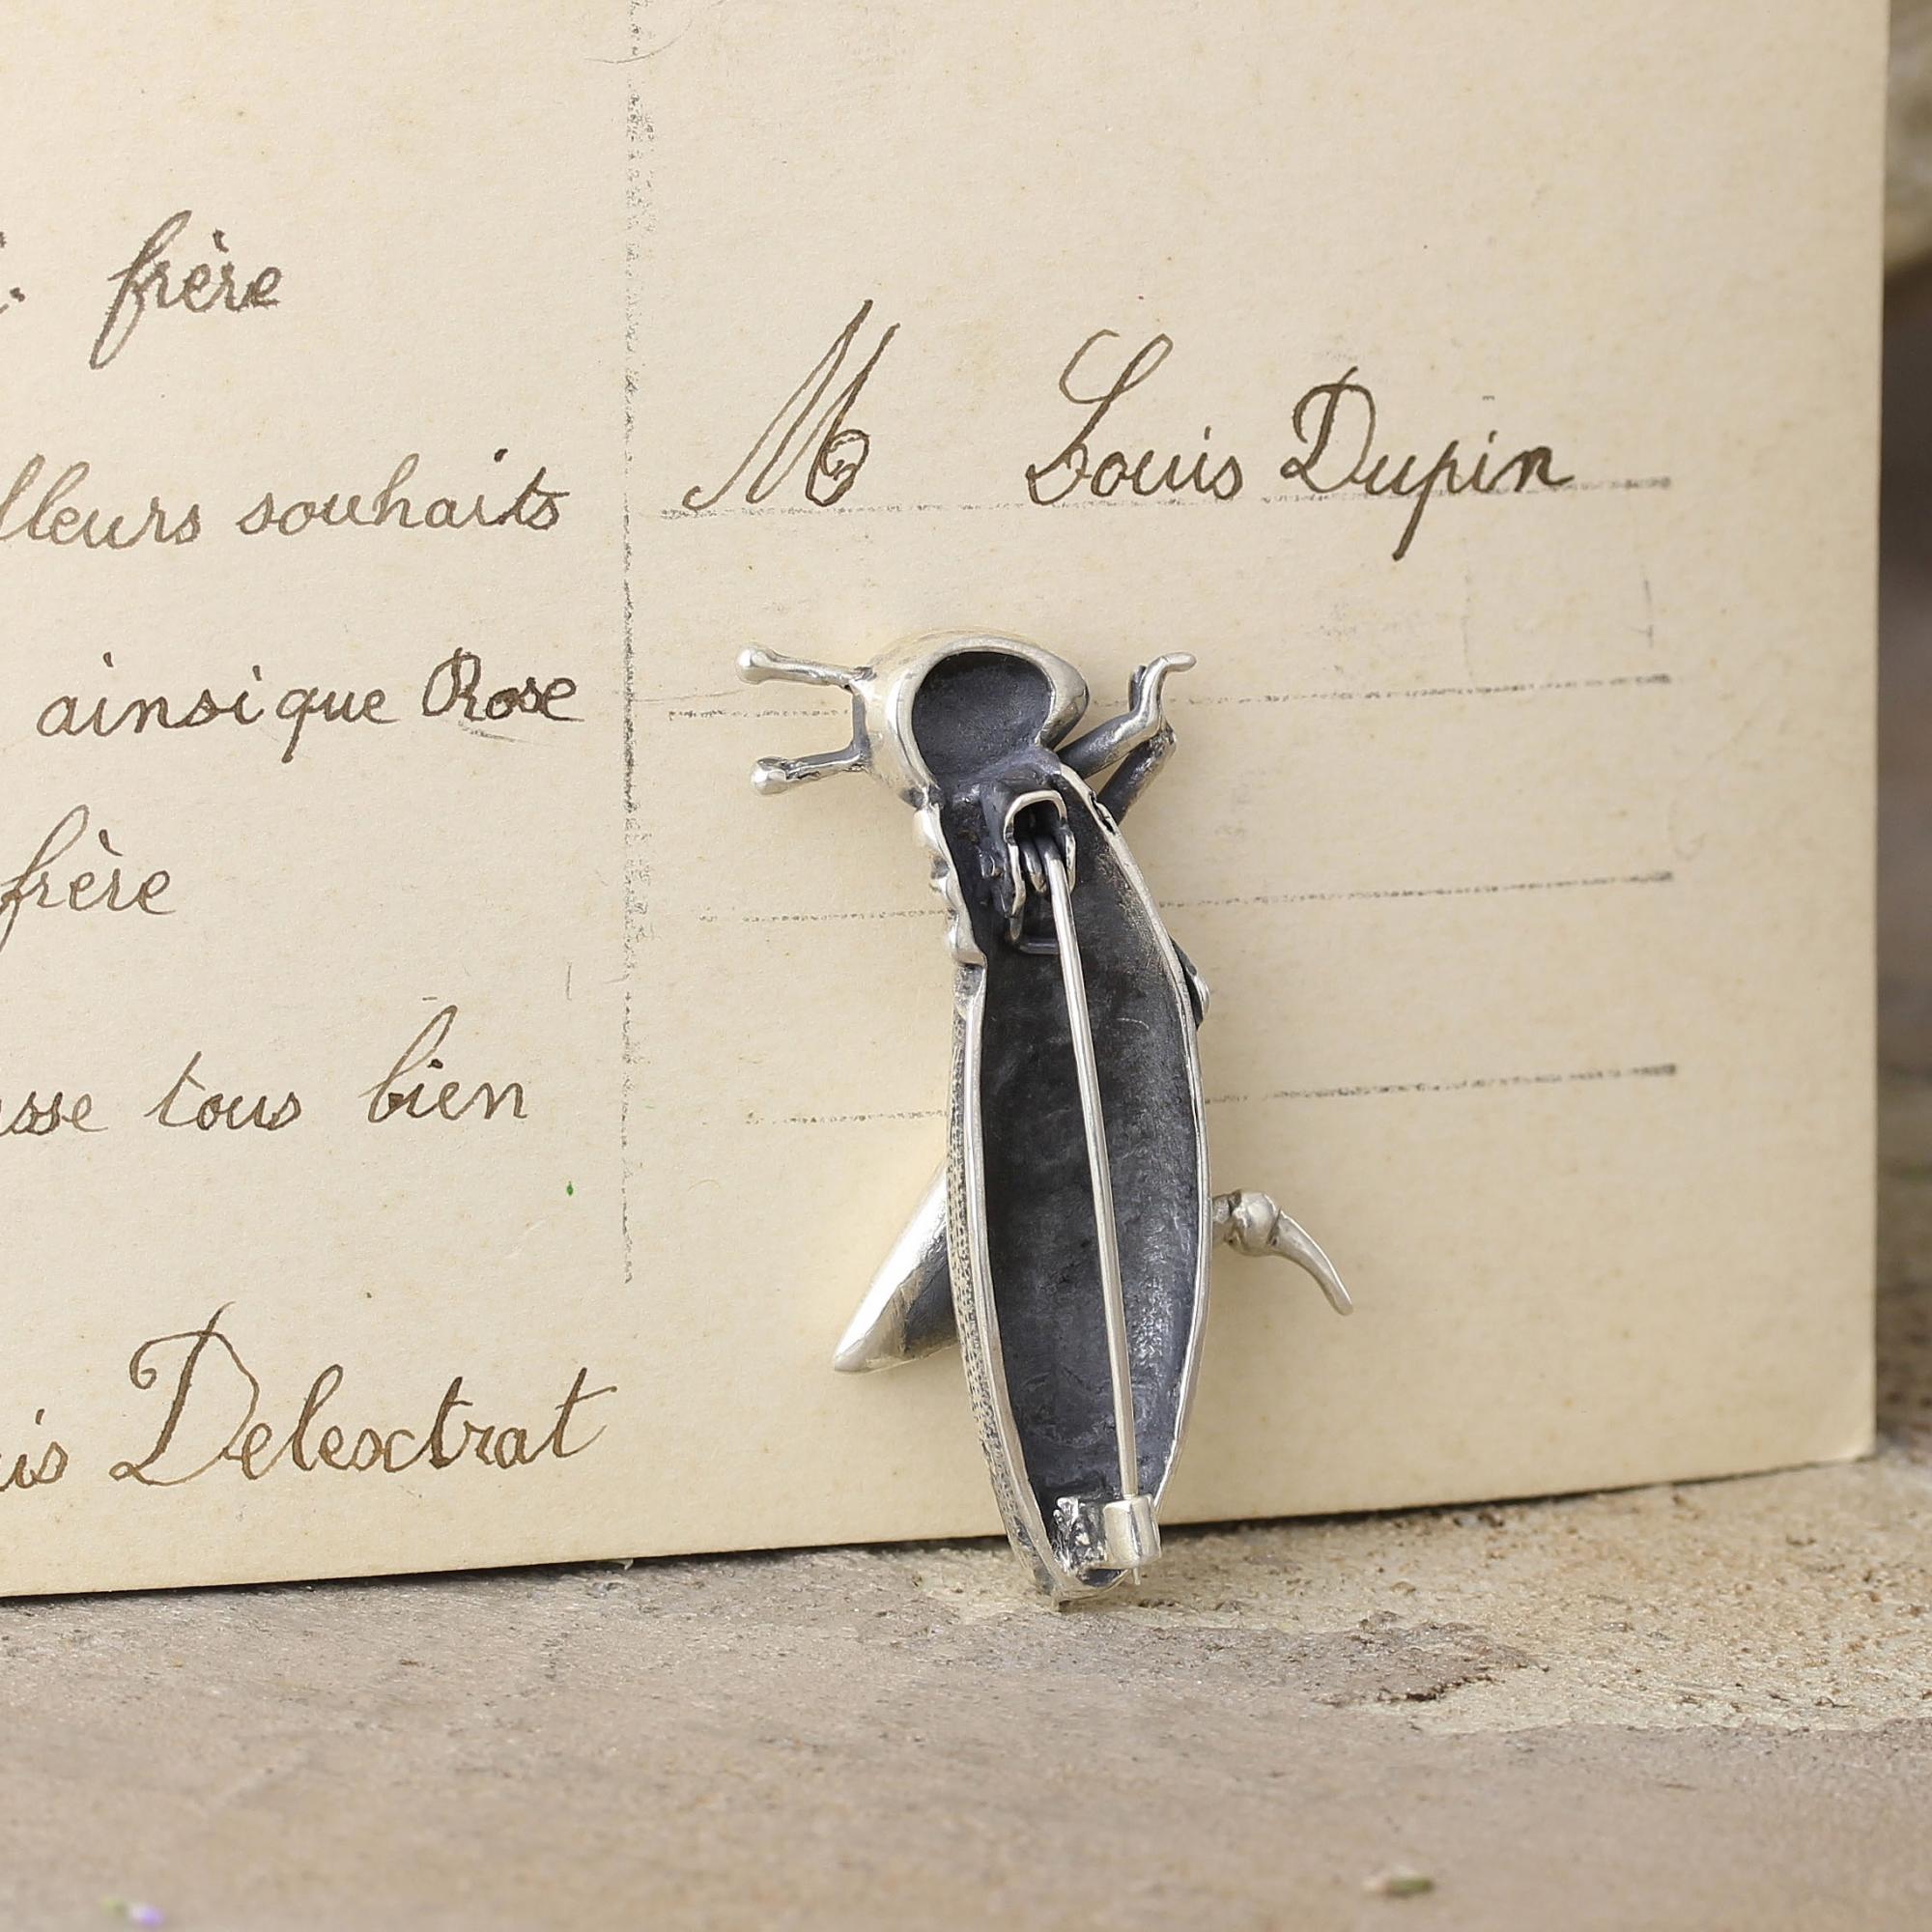 frère
lleurs souhaits
ainsi que Rose
frère
asse tous bien
is Delextrat
M Louis Dupin